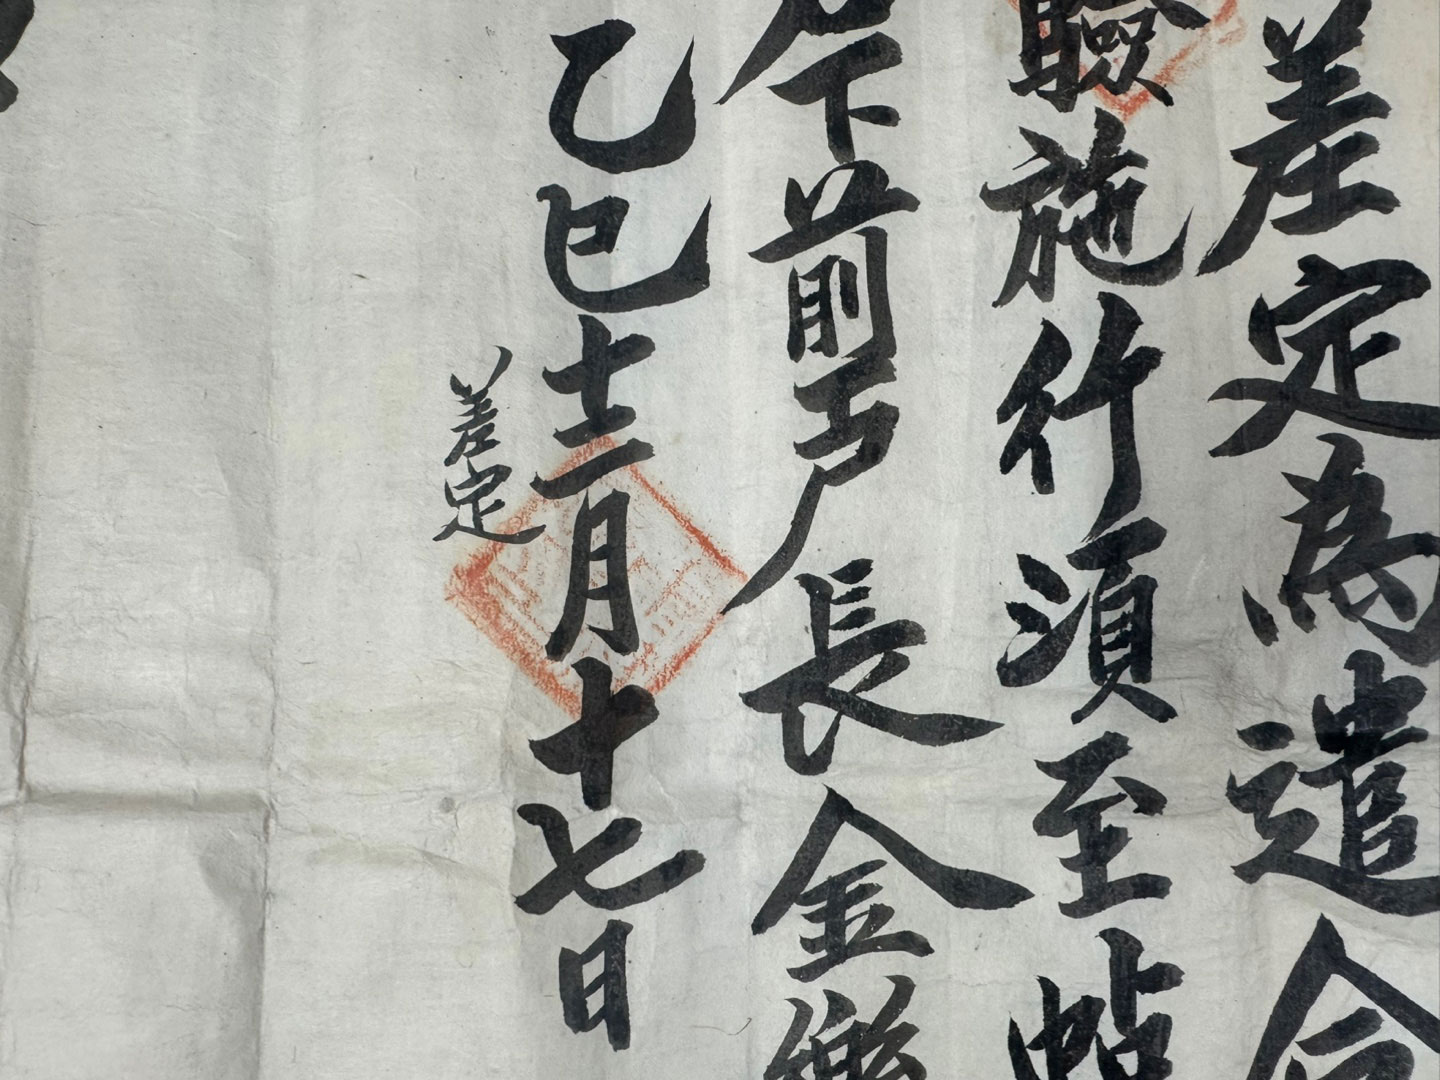 差定爲遣合
驗施行須至帖
下前戶長金
乙巳十二月十七日
差定